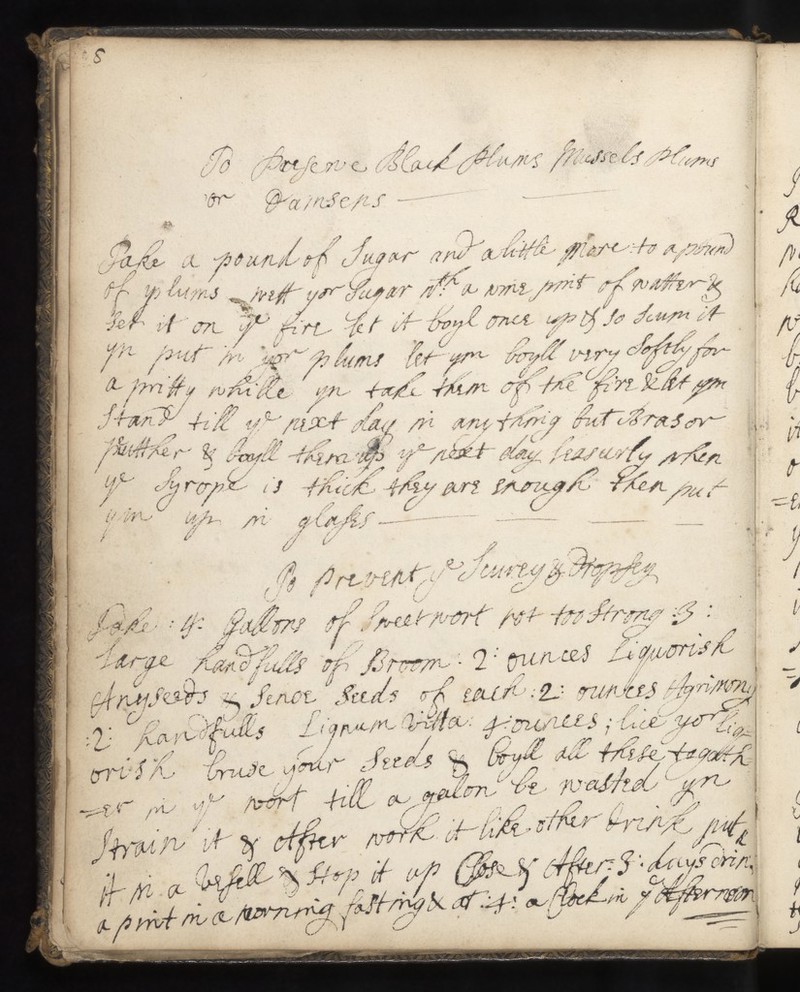 8
To Preserve Black Plums Mussels Plums
or Damsens
Take a pound of Sugar and a little more to a pound
of plums wett yor Sugar wth a wine pint of watter &
Set it on ye fire let it boyl once up & so scum it
yn put in yor plums let ym boyll very Softly for
a pritty whille yn take them of the fire & let ym
Stand till ye next day in any thing but Bras or
putther & boyll them up ye next day leasurly when
ye Syrope is thick they are enough then put
ym up in glasses
To prevent ye Scurvey & Dropsey
Take : 4: Gallons of Sweet wort not too Strong :3:
Large handfulls of Broom : 2: ounces Liquorish
Anyseeds & Sence Seeds of each :2: ounces Agrimony
:2: handfulls Lignum Vitta: 4: ounces ; lice yor liq=
orish bruse your Seeds & boyll all these togath
=er in ye wort till a galon be wasted yn
Strain it & After work it like other Drink put
it in a Vessell & Stop it up Close & After :3: days drin
a pint in a morning fasting & at :4: a Clock in ye Afternoon